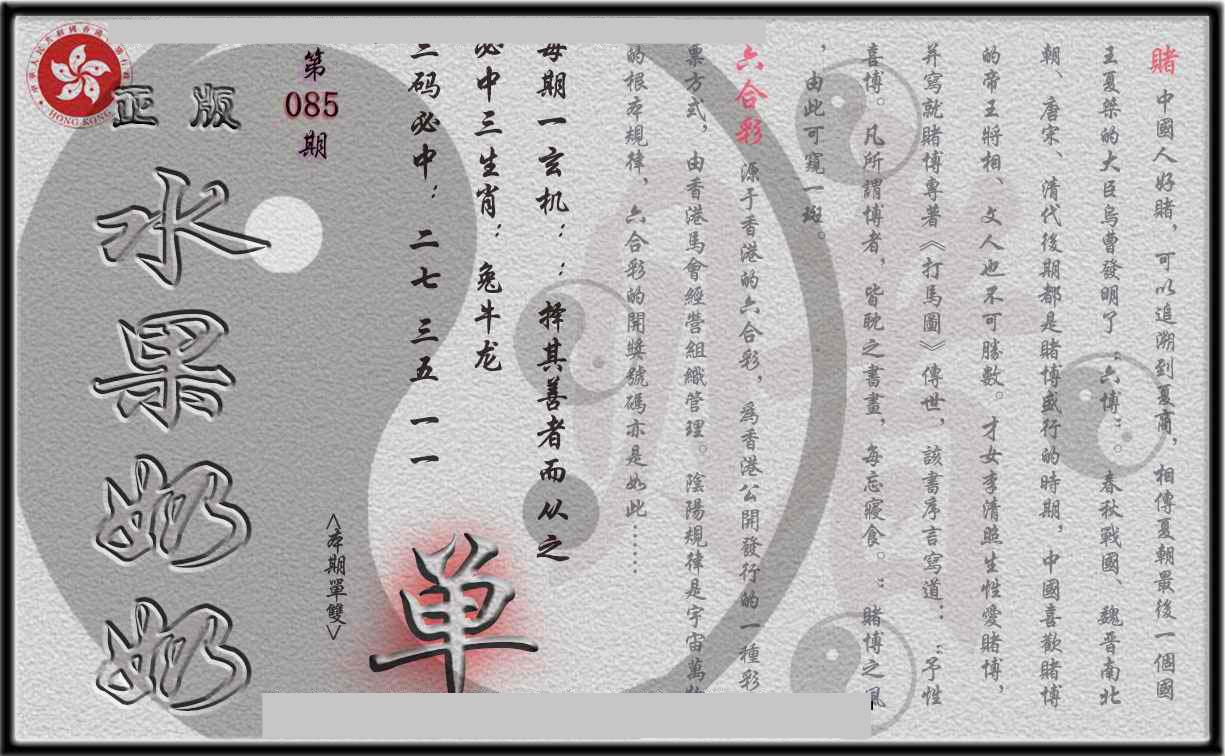 賭 中國人好賭，可以追溯到夏商，相傳夏朝最後一個國
王夏桀的大臣烏曹發明了“六博”。春秋戰國、魏晉南北
朝、唐宋、清代後期都是賭博盛行的時期，中國喜歡賭博
的帝王將相、文人也不可勝數。才女李清照生性愛賭博，
并寫就賭博專著《打馬圖》傳世，該書序言寫道：“予性
喜博。凡所謂博者，皆耽之晝，每忘寢食。”賭博之風
，由此可窺一斑。
六合彩 源于香港的六合彩，為香港公開發行的一種彩
票方式，由香港馬會經營組織管理。陰陽規律是宇宙萬物
的根本規律，六合彩的開獎號碼亦是如此……
每期一玄机：：择其善者而从之
必中三生肖：兔牛龙
三码必中：二七 三五 一一
单
<本期單雙>
第
085
期
正版
水果奶奶
HONG KONG